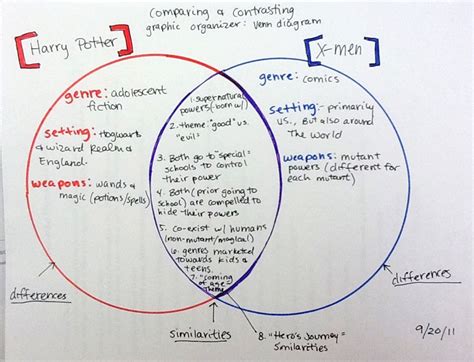 Comparing & Contrasting
graphic organizer: Venn diagram
[Harry Potter]
[X-men]
genre: adolescent
fiction
setting: Hogwarts
& wizard Realm &
England.
weapons: wands &
magic (potions/spells)
1. supernatural
powers (-born w/)
2. theme: "good" vs.
"evil"
3. Both go to "special"
schools to control
their power
4. Both (prior going to
school) are compelled to
hide their powers
5. co-exist w/ humans
(non-mutant/magical)
6. genres marketed
towards kids &
teens.
7. "coming
of age"
Theme
genre: comics
setting:- primarily
US., But also around
The World
weapons: mutant
powers (different for
each mutant)
differences
similarities
8. "Hero's Journey"
Similarities
differences
9/20/11